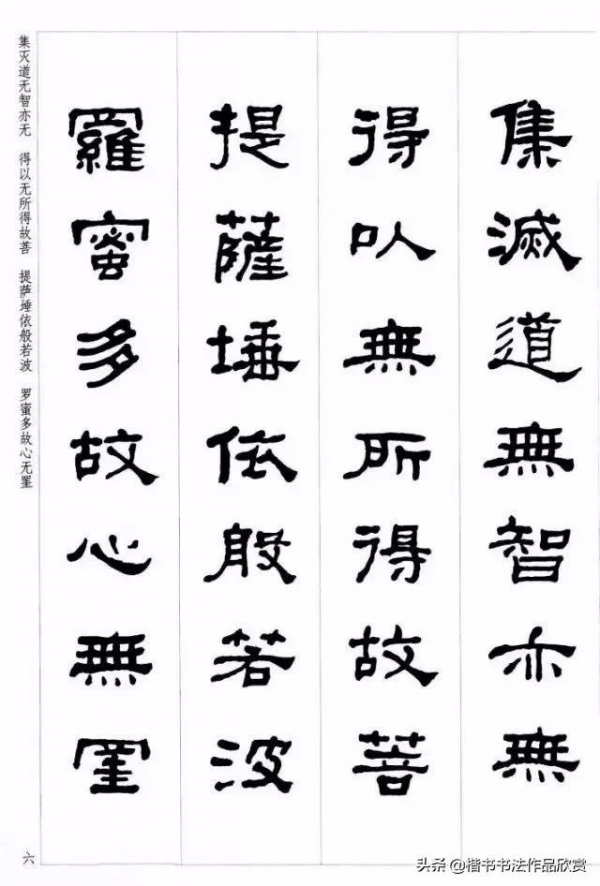 集滅道無智亦無
得以無所得故菩
提薩埵依般若波
羅蜜多故心無罣
集灭道无智亦无 得以无所得故菩 提萨埵依般若波 罗蜜多故心无罣
六
头条 @楷书书法作品欣赏